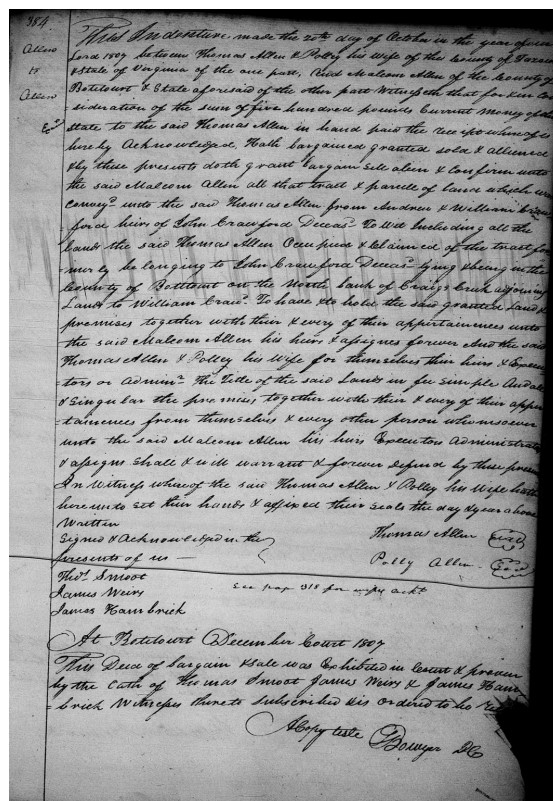 384
Allen
to
Allen
This Indenture made the 20th day of October in the year of our
Lord 1807 between Thomas Allen & Polly his wife of the County of
& State of Virginia of the one part, And Malcom Allen of the County of
Botetourt & State aforesaid of the other part Witnesseth that for & in Con
=sideration of the sum of five hundred pounds Current Money of the
State to the said Thomas Allen in hand paid the receipt whereof is
hereby Acknowledged, Hath bargained granted sold & alliened
& by these presents doth grant bargain Sell alien & Confirm unto
the said Malcom Allen all that tract & parcele of land which was
Convey.d unto the said Thomas Allen from Andrew & William Craw
=ford heirs of John Crawford Deceas.d To Wit Including all the
Lands the said Thomas Allen Occupied & Claimed of the tract for
=merly belonging to John Crawford Deceas.d lying & being in the
County of Bottourt on the North bank of Craigs Creek adjoining
Lands to William Craw.d To have & to hold the said granted land &
premises together with their & every of their appertainences unto
the said Malcom Allen his heirs & assignes forever And the said
Thomas Allen & Polley his Wife for themselves their heirs & Execu
=tors or Admin.rs The Title of the said Lands in fee Simple And all
& Singular the premises together with their & every of their apper
=tainences from themselves & every other person whomsoever
unto the said Malcom Allen his heirs Executors Administrators
& assigns Shall & will warrant & forever defend by these presents
In Witness whereof the said Thomas Allen & Polley his Wife hath
hereunto Set their hands & affixed their Seals the day & year above
Written
Signed & Acknowledged in the
presents of us —
Thomas Allen Seal
Polly Allen Seal
Tho.s Smoot
James Weirs
James Hambrick
See page 318 for wifes ackt
At Botetourt December Court 1807
This Deed of bargain & Sale was Exhibited in Court & proven
by the Oath of Thomas Smoot James Weirs & James Ham
=brick Witnesses thereto Subscribed & is ordered to be
A Copy teste Bowyer DC